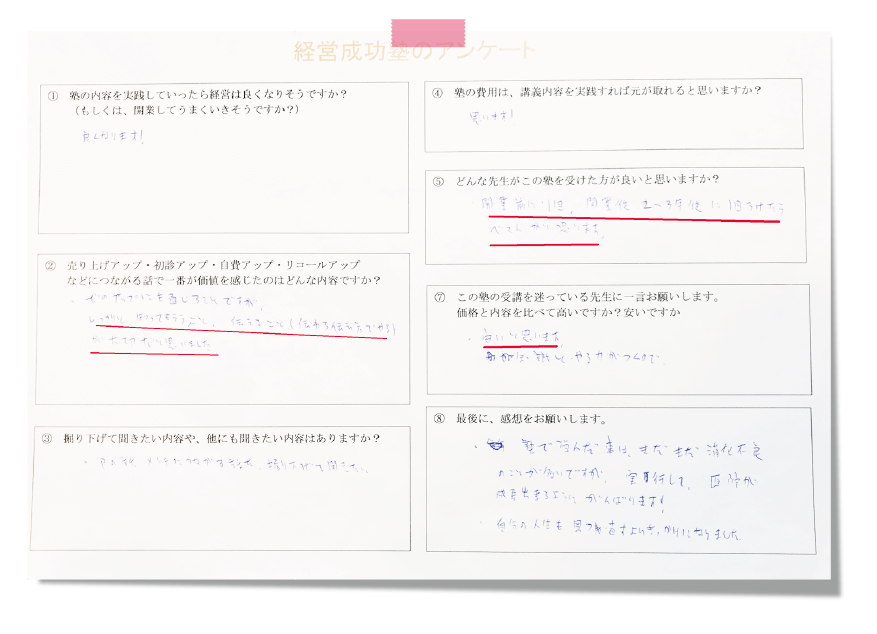 経営成功塾のアンケート
① 塾の内容を実践していったら経営は良くなりそうですか?
(もしくは、開業してうまくいきそうですか?)
良くなります!
② 売り上げアップ・初診アップ・自費アップ・リコールアップ
などにつながる話で一番が価値を感じたのはどんな内容ですか?
しっかり 伝えること(伝わる伝え方でやる)
が大切だと思いました
③ 掘り下げて聞きたい内容や、他にも聞きたい内容はありますか?
掘り下げて聞きたい
④ 塾の費用は、講義内容を実践すれば元が取れると思いますか?
思います!
⑤ どんな先生がこの塾を受けた方が良いと思いますか?
開業前に1回、開業後 2〜3年後に1回うけたら
ベストかと思います。
⑦ この塾の受講を迷っている先生に一言お願いします。
価格と内容を比べて高いですか?安いですか
・安いと思います。
⑧ 最後に、感想をお願いします。
・塾で学んだ事は、まだまだ消化不良
のことが多いですが、実行して、医院が
成長出来るように がんばります!
・自分の人生を見つめ直すよいきっかけになりました